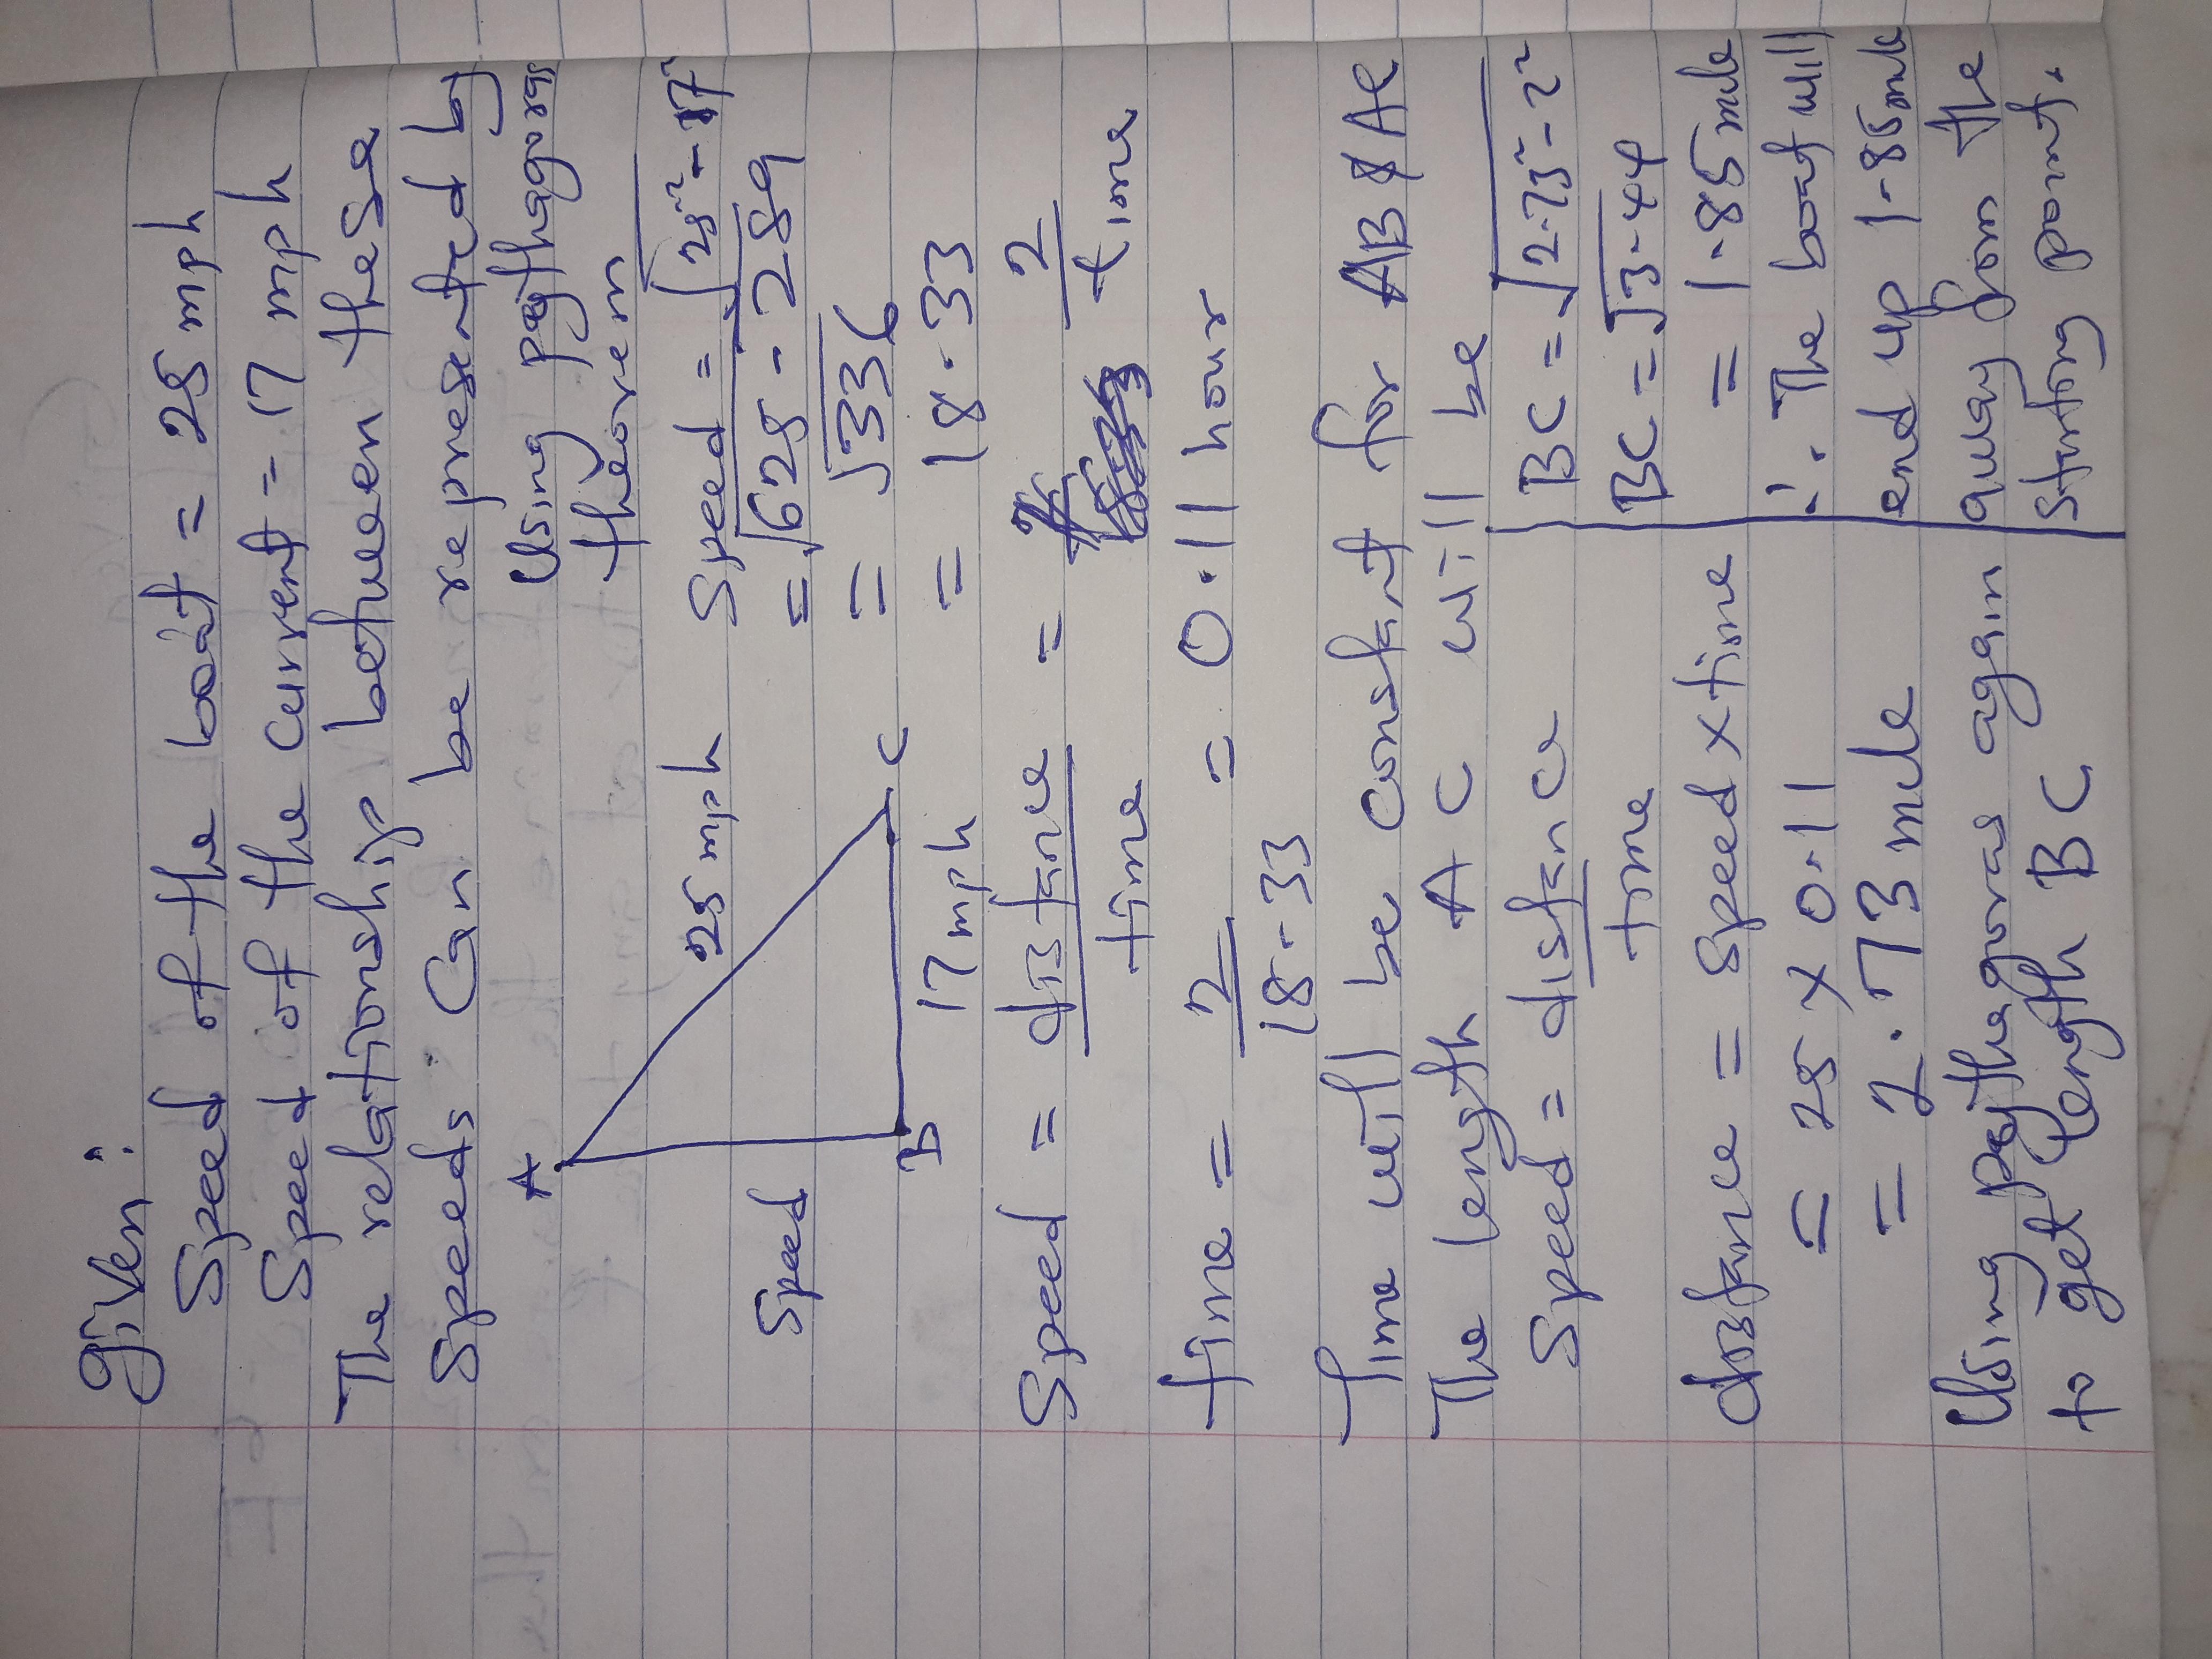 given:
Speed of the boat = 25 mph
Speed of the current = 17 mph
The relationship between these
Speeds Can be represented by
Using pythagoras
theorem
A
25 mph
Speed
B
C
17 mph
Speed = √25² - 17²
= √625 - 289
= √336
= 18.33
Speed = distance/time = 2/time
time = 2/18.33 = 0.11 hour
Time will be constant for AB & AC
The length AC will be
Speed = distance/time
distance = speed x time
= 25 x 0.11
= 2.73 mile
Using pythagoras again
to get length BC
BC = √2.73² - 2²
BC = √3.44
= 1.85 mile
∴ The boat will
end up 1.85 mile
away from the
starting point.